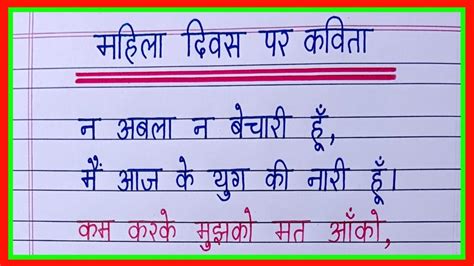 महिला दिवस पर कविता
न अबला न बेचारी हूँ,
मैं आज के युग की नारी हूँ।
कम करके मुझको मत आँको,